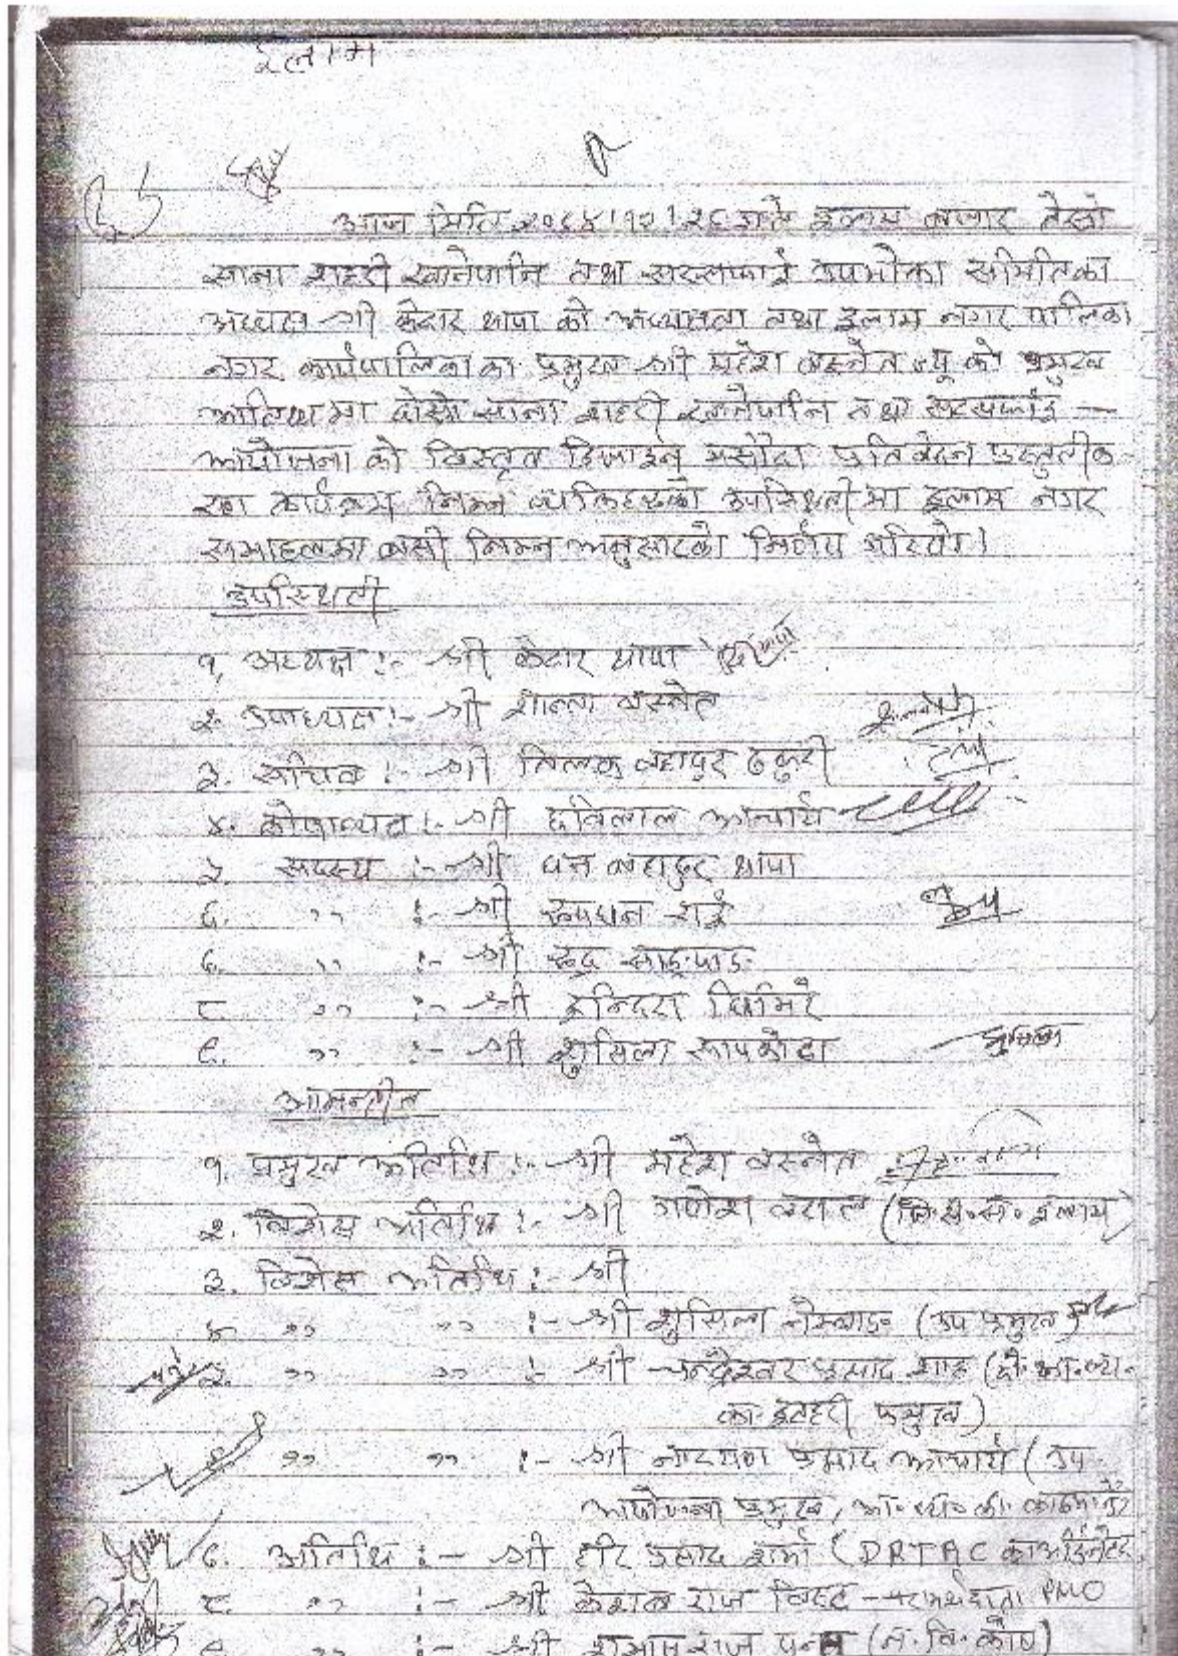 इलाम
आज मिति २०७४।१२।२६ गते इलाम बजार
साना शहरी खानेपानि तथा सरसफाई उपभोक्ता समितिका
अध्यक्ष श्री केदार थापा को अध्यक्षता तथा इलाम नगर पालिका
नगर कार्यपालिका का प्रमुख श्री महेश बस्नेत ज्यू को प्रमुख
अतिथिमा दोस्रो साना शहरी खानेपानि तथा सरसफाई -
आयोजना को विस्तृत डिजाईन मसौदा प्रतिवेदन प्रस्तुतीक
रण कार्यक्रम निम्न व्यक्तिहरुको उपस्थिती मा इलाम नगर
सभाहलमा बसी निम्न अनुसारको निर्णय गरियो।
उपस्थिती
१. अध्यक्ष :- श्री केदार थापा
२. उपाध्यक्ष :- श्री शान्ता बस्नेत
३. सचिव :- श्री तिलक बहादुर ठकुरी
४. कोषाध्यक्ष :- श्री छविलाल आचार्य
५. सदस्य :- श्री धन बहादुर थापा
६. ,, :- श्री रूपधन राई
७. ,, :- श्री रुद्र
८ ,, :- श्री इन्दिरा घिमिरे
९. ,, :- श्री शुसिला सापकोटा
आमन्त्रीत
१. प्रमुख अतिथि :- श्री महेश बस्नेत
२. विशेष अतिथि :- श्री गणेश बराल (जि.स.स. इलाम)
३. विशेष अतिथि :- श्री
४ ,, ,, :- श्री शुसिला नेम्बाङ (उप प्रमुख)
५. ,, ,, :- श्री चन्द्रेश्वर प्रसाद शाह
का. इटहरी प्रमुख)
,, ,, :- श्री नारायण प्रसाद आचार्य (उप
आयोजना प्रमुख,
७. अतिथि :- श्री हरि प्रसाद शर्मा (DRTAC कोअर्डिनेटर
८ ,, :- श्री केशव राज विष्ट - परामर्शदाता PMO
९ ,, :- श्री राज पन्त (न. वि. कोष)